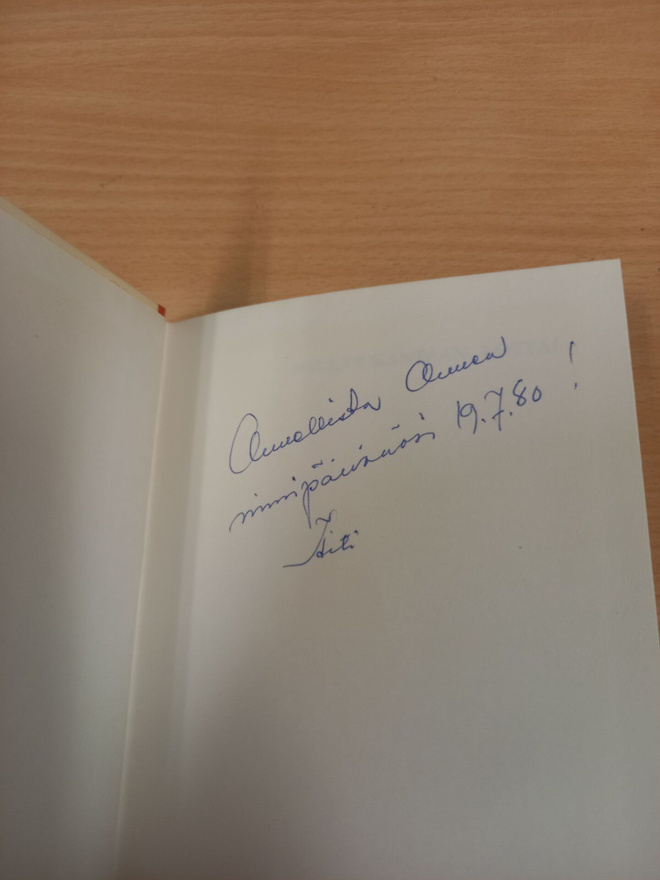 Onnellista Onnea !
nimipäivänäsi 19.7.80
Äiti